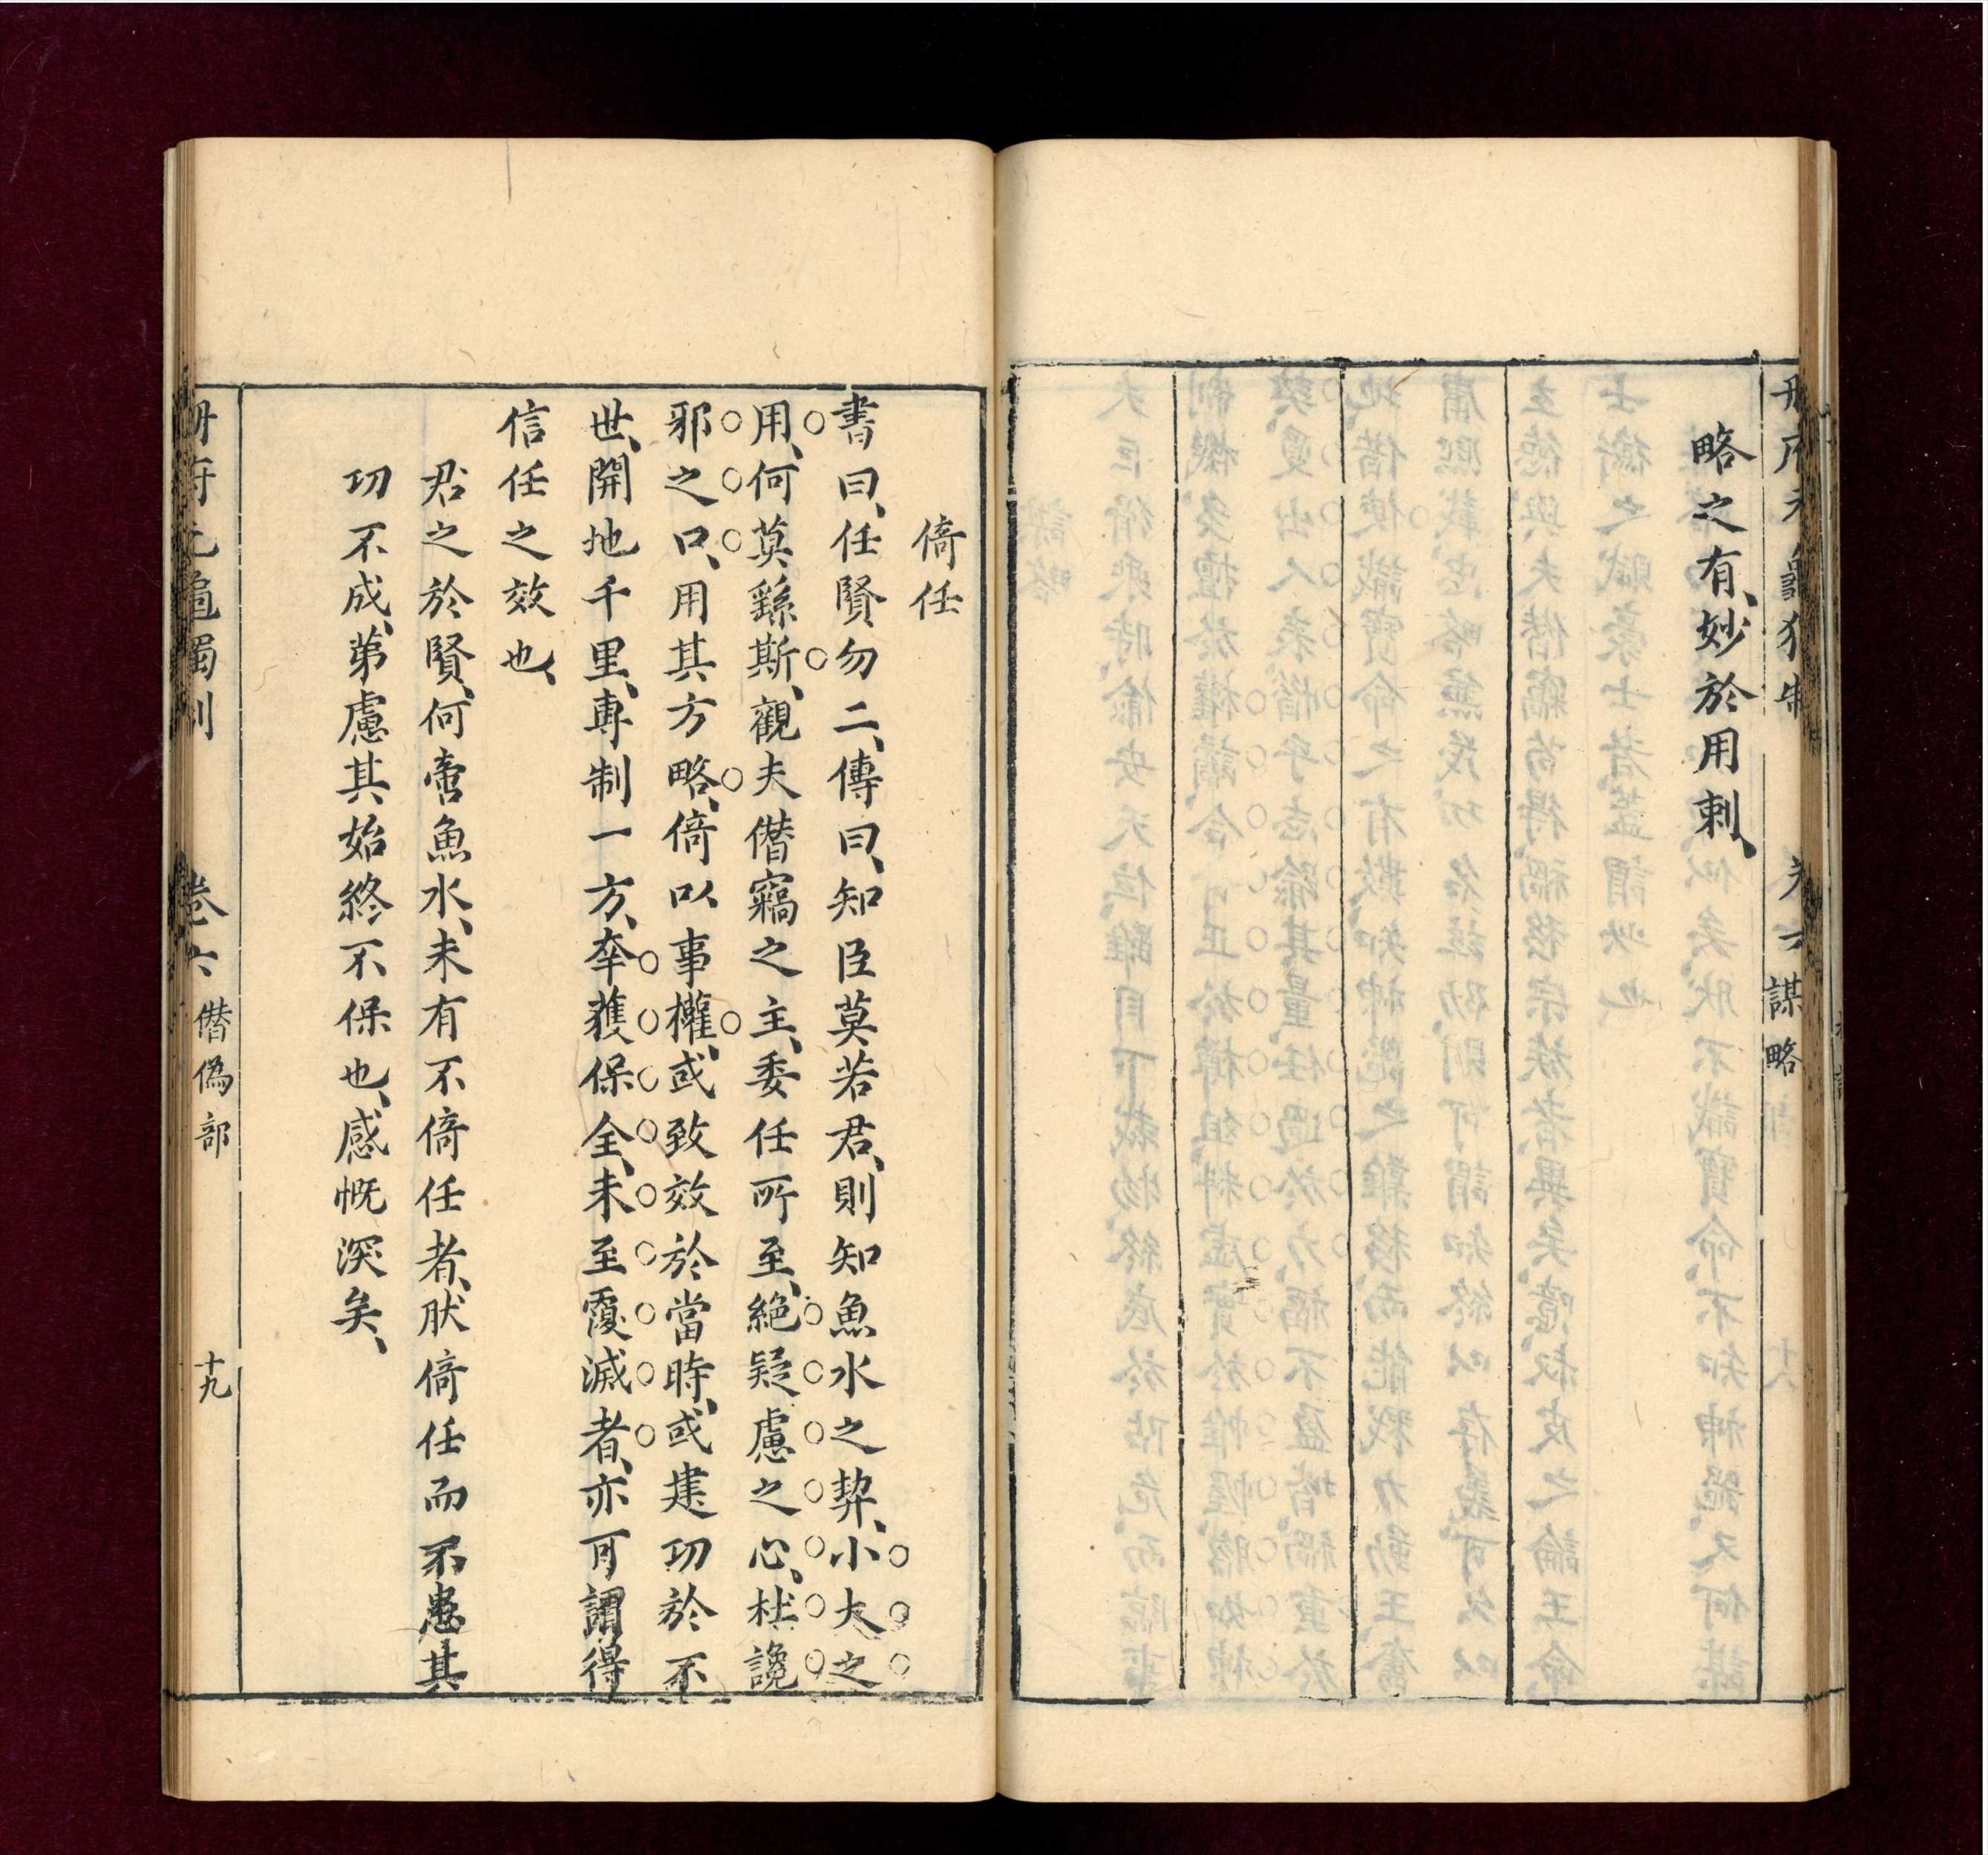 冊府元龜獨制 卷六 謀略
略之有、妙於用刺、
倚任
書曰、任賢勿二、傳曰、知臣莫若君、則知魚水之契、小大之
用、何莫繇斯、觀夫僭竊之主、委任所至、絕疑慮之心、杜讒
邪之口、用其方略、倚以事權、或致效於當時、或建功於不
世、開地千里、專制一方、率獲保全、未至覆滅者、亦可謂得
信任之效也、
君之於賢、何啻魚水、未有不倚任者、肰倚任而不患其
功不成、第慮其始終不保也、感慨深矣、
冊府元龜獨制 卷六 僭偽部 十九